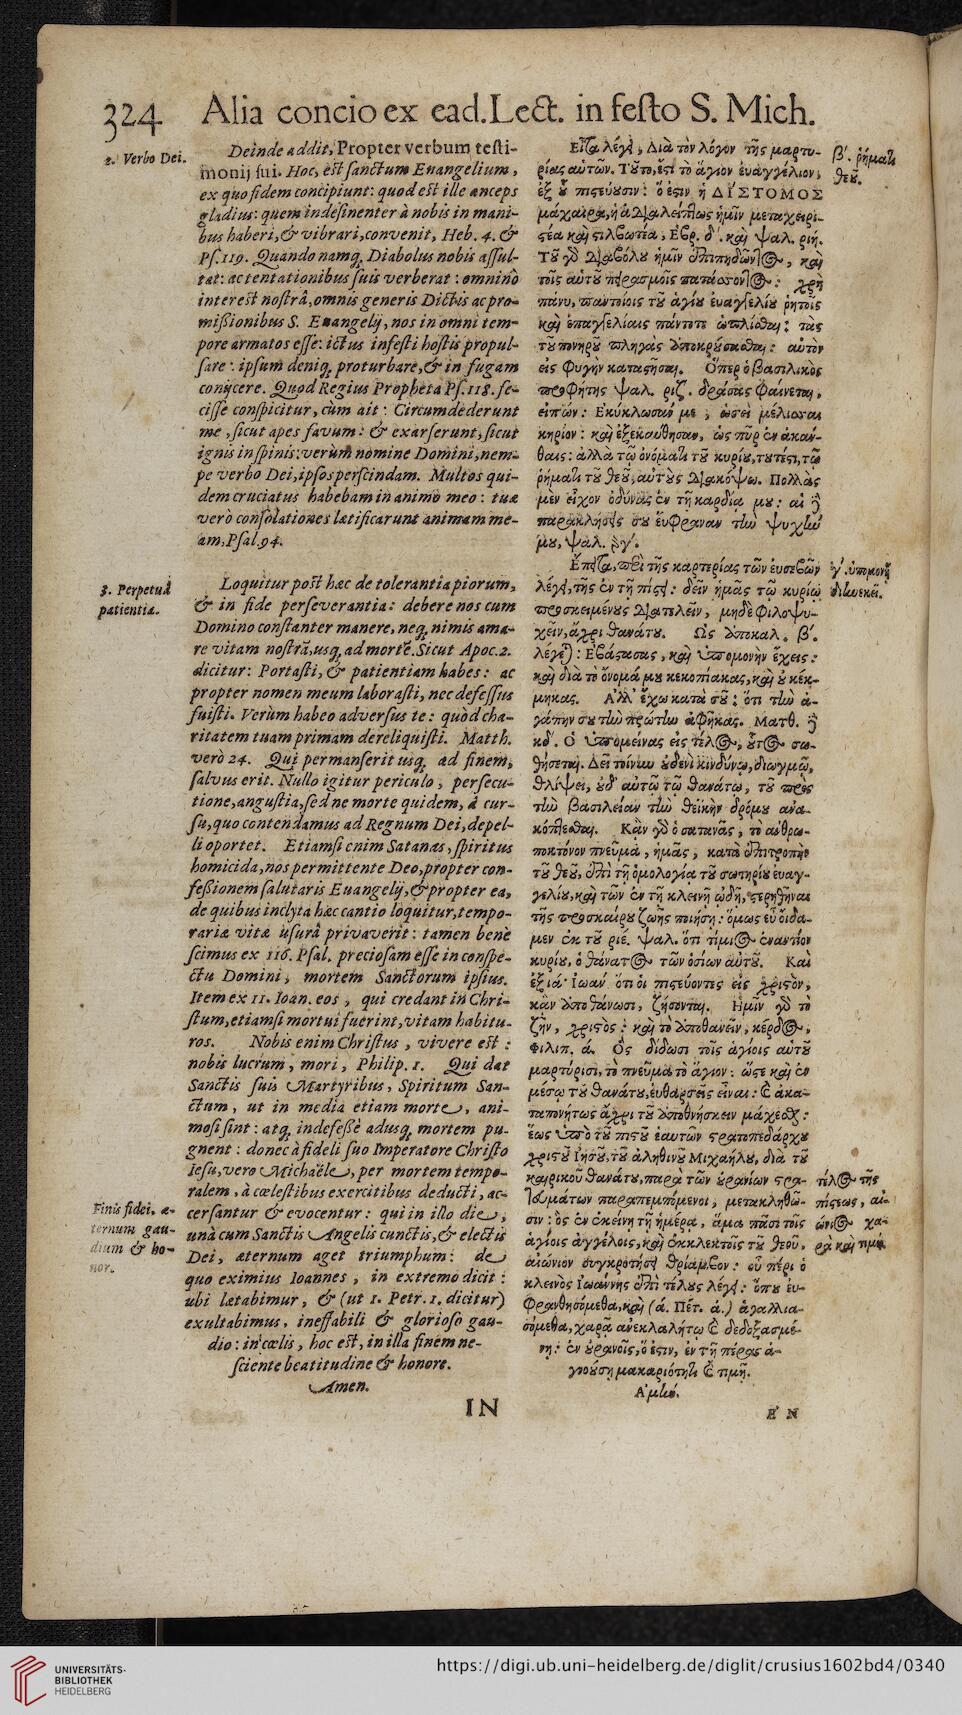 324 Alia concio ex ead. Lect. in festo S. Mich.
2. Verbo Dei.
Deinde addit, Propter verbum testi-
monij sui. Hoc, est sanctum Euangelium,
ex quo fidem concipiunt: quod est ille anceps
gladius: quem indesinenter à nobis in mani-
bus haberi, & vibrari, convenit, Heb. 4. &
Ps. 119. Quando namq; Diabolus nobis assul-
tat: ac tentationibus suis verberat: omninò
interest nostrâ, omnis generis Dictis ac pro-
mißionibus S. Euangelij, nos in omni tem-
pore armatos esse: ictus infesti hostis propul-
sare: ipsum deniq; proturbare, & in fugam
conijcere. Quod Regius Propheta Ps. 118. fe-
cisse conspicitur, cùm ait: Circumdederunt
me, sicut apes favum: & exarserunt, sicut
ignis in spinis: verùm nomine Domini, nem-
pe verbo Dei, ipsos perscindam. Multos qui-
dem cruciatus habebam in animo meo: tuæ
verò consolationes lætificarunt animam me-
am, Psal. 94.
3. Perpetuâ
patientiâ.
Loquitur post hæc de tolerantia piorum,
& in fide perseverantia: debere nos cum
Domino constanter manere, neq; nimis ama-
re vitam nostrã, usq; ad mortẽ. Sicut Apoc. 2.
dicitur: Portasti, & patientiam habes: ac
propter nomen meum laborasti, nec defessus
fuisti. Verùm habeo adversus te: quòd cha-
ritatem tuam primam dereliquisti. Matth.
verò 24. Qui permanserit usq; ad finem,
salvus erit. Nullo igitur periculo, persecu-
tione, angustia, sed ne morte quidem, à cur-
su, quo contendamus ad Regnum Dei, depel-
li oportet. Etiamsi enim Satanas, spiritus
homicida, nos permittente Deo, propter con-
feßionem salutaris Euangelij, & propter ea,
de quibus inclyta hæc cantio loquitur, tempo-
rariæ vitæ usurâ privaverit: tamen benè
scimus ex 116. Psal. preciosam esse in conspe-
ctu Domini, mortem Sanctorum ipsius.
Item ex 11. Ioan. eos, qui credant in Chri-
stum, etiamsi mortui fuerint, vitam habitu-
ros. Nobis enim Christus, vivere est:
nobis lucrum, mori, Philip. 1. Qui dat
Sanctis suis Martyribus, Spiritum San-
ctum, ut in media etiam morte, ani-
mosi sint: atq; indefeßè adusq; mortem pu-
gnent: donec à fideli suo Imperatore Christo
Iesu, vero Michaële, per mortem tempo-
ralem, à cœlestibus exercitibus deducti, ac-
cersantur & evocentur: qui in illo die,
unà cum Sanctis Angelis cunctis, & electis
Dei, æternum aget triumphum: de
quo eximius Ioannes, in extremo dicit:
ubi lætabimur, & (ut 1. Petr. 1. dicitur)
exultabimus, ineffabili & glorioso gau-
dio: in cœlis, hoc est, in illa finem ne-
sciente beatitudine & honore.
Amen.
Finis fidei, æ-
ternum gau-
dium & ho-
nor.
IN
Εἶτα λέγει, Διὰ τὸν λόγον τῆς μαρτυ-
ρίας αὐτῶν. Τοῦτο, ἔστι τὸ ἅγιον ἐυαγγέλιον,
ἐξ οὗ πιστεύουσιν: ὅ ἐστιν ἡ ΔΙΣΤΟΜΟΣ
μάχαιρα, ἡ ἀδιαλείπτως ἡμῖν μεταχειρι-
στέα καὶ στιλβωτέα, Εβρ. δ'. καὶ ψαλ. ριή.
Τοῦ γὸ διαβόλου ἡμῖν ἐπιπηδῶντος, καὶ
τοῖς αὐτοῦ πειρασμοῖς πατάσσοντος: χρὴ
πάνυ, παντοίοις τοῦ ἁγίου ἐυαγγελίου ῥητοῖς
καὶ ἐπαγγελίαις πάντοτε ὡπλίσθαι: τὰς
τοῦ πονηροῦ πληγὰς ἀποκρούσασθαι: αὐτὸν
εἰς φυγὴν καταστῆσαι. Οπερ ὁ βασιλικὸς
προφήτης ψαλ. ριζ. δράσας φαίνεται,
εἰπών: Εκύκλωσάν με, ὡσεὶ μέλισσαι
κηρίον: καὶ ἐξεκαύθησαν, ὡς πῦρ ἐν ἀκάν-
θαις: ἀλλὰ τῷ ὀνόματι τοῦ κυρίου, τουτέστι, τῷ
ῥήματι τοῦ θεοῦ, αὐτοὺς διακόψω. Πολλὰς
μὲν εἶχον ὀδύνας ἐν τῇ καρδίᾳ μου: αἱ δὲ
παρακλήσεις σου ἐυφραναν τὴν ψυχήν
μου, ψαλ. ϟγ'.
β'. ῥήματι
θεοῦ.
Επειτα, περὶ τῆς καρτερίας τῶν ἐυσεβῶν
λέγει, τῆς ἐν τῇ πίστει: δεῖν ἡμᾶς τῷ κυρίῳ
προσκειμένους διατελεῖν, μηδὲ φιλοψυ-
χεῖν, ἄχρι θανάτου. Ως ἀποκαλ. β'.
λέγεται: Εβάστασας, καὶ ὑπομονὴν ἔχεις:
καὶ διὰ τὸ ὄνομά μου κεκοπίακας, καὶ οὐ κέκ-
μηκας. Αλλ' ἔχω κατὰ σοῦ: ὅτι τὴν ἀ-
γάπην σου τὴν πρώτην ἀφῆκας. Ματθ. δὲ
κδ'. Ο ὑπομείνας εἰς τέλος, οὗτος σω-
θήσεται. Δεῖ τοίνυν οὐδενὶ κινδύνῳ, διωγμῷ,
θλίψει, οὐδ' αὐτῷ τῷ θανάτῳ, τοῦ πρὸς
τὴν βασιλείαν τὴν θεϊκὴν δρόμου ἀνα-
κόπτεσθαι. Κᾂν γὸ ὁ σατανᾶς, τὸ ἀνθρω-
ποκτόνον πνεῦμα, ἡμᾶς, κατὰ ἐπιτροπὴν
τοῦ θεοῦ, ἐπὶ τῇ ὁμολογίᾳ τοῦ σωτηρίου ἐυαγ-
γελίου, καὶ τῶν ἐν τῇ κλεινῇ ᾠδῇ, στερηθῆναι
τῆς προσκαίρου ζωῆς ποιήσῃ: ὅμως εὖ οἴδα-
μεν ἐκ τοῦ ριέ. ψαλ. ὅτι τίμιος ἐναντίον
κυρίου, ὁ θάνατος τῶν ὁσίων αὐτοῦ. Καὶ
ἐξ ιά. Ιωαν. ὅτι οἱ πιστεύοντες εἰς χριστὸν,
κᾂν ἀποθάνωσι, ζήσονται. Ημῖν γὸ τὸ
ζῆν, χριστός: καὶ τὸ ἀποθανεῖν, κέρδος,
Φιλιπ. ά. Ος δίδωσι τοῖς ἁγίοις αὐτοῦ
μαρτύρισι, τὸ πνεῦμα τὸ ἅγιον: ὥστε καὶ ἐν
μέσῳ τοῦ θανάτου, ἐυθαρσεῖς εἶναι: καὶ ἀκα-
ταπονήτως ἄχρι τοῦ ἀποθνήσκειν μάχεσθαι:
ἕως ὑπὸ τοῦ πιστοῦ ἑαυτῶν στρατοπεδάρχου
χριστοῦ Ιησοῦ, τοῦ ἀληθινοῦ Μιχαήλου, διὰ τοῦ
καιρικοῦ θανάτου, παρὰ τῶν οὐρανίων στρα-
τευμάτων παραπεμπόμενοι, μετακληθῶ-
σιν: ὃς ἐν ἐκείνῃ τῇ ἡμέρᾳ, ἅμα πᾶσι τοῖς
ἁγίοις ἀγγέλοις, καὶ ἐκλεκτοῖς τοῦ θεοῦ,
αἰώνιον συγκροτήσει θρίαμβον: οὗ πέρι ὁ
κλεινὸς Ιωάννης ἐπὶ τέλους λέγει: ὅπου ἐυ-
φρανθησόμεθα, καὶ (ά. Πέτ. ά.) ἀγαλλια-
σόμεθα, χαρᾷ ἀνεκλαλήτῳ καὶ δεδοξασμέ-
νῃ: ἐν οὐρανοῖς, ὅ ἐστιν, ἐν τῇ πέρας ἀ-
γνοούσῃ μακαριότητι καὶ τιμῇ.
Αμήν.
γ'. ὑπομονῇ
διηνεκεῖ.
τέλος τῆς
πίστεως, αἰ-
ώνιος χα-
ρὰ καὶ τιμή.
ΕΝ
UNIVERSITÄTS-
BIBLIOTHEK
HEIDELBERG
https://digi.ub.uni-heidelberg.de/diglit/crusius1602bd4/0340